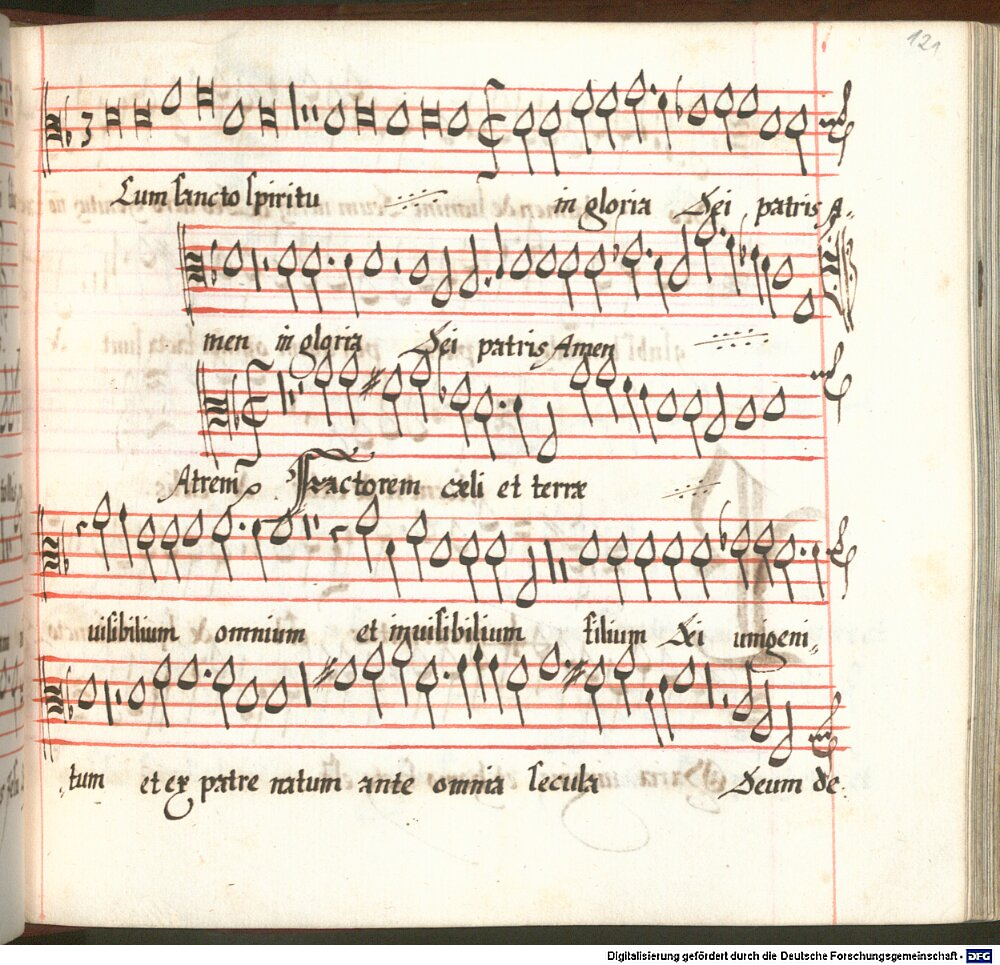 121
3
Cum sancto spiritu in gloria Dei patris A-
men in gloria Dei patris Amen
Atrem Factorem cæli et terræ
uisibilium omnium et inuisibilium filium Dei unigeni„
„tum et ex patre natum ante omnia secula Deum de
Digitalisierung gefördert durch die Deutsche Forschungsgemeinschaft - DFG